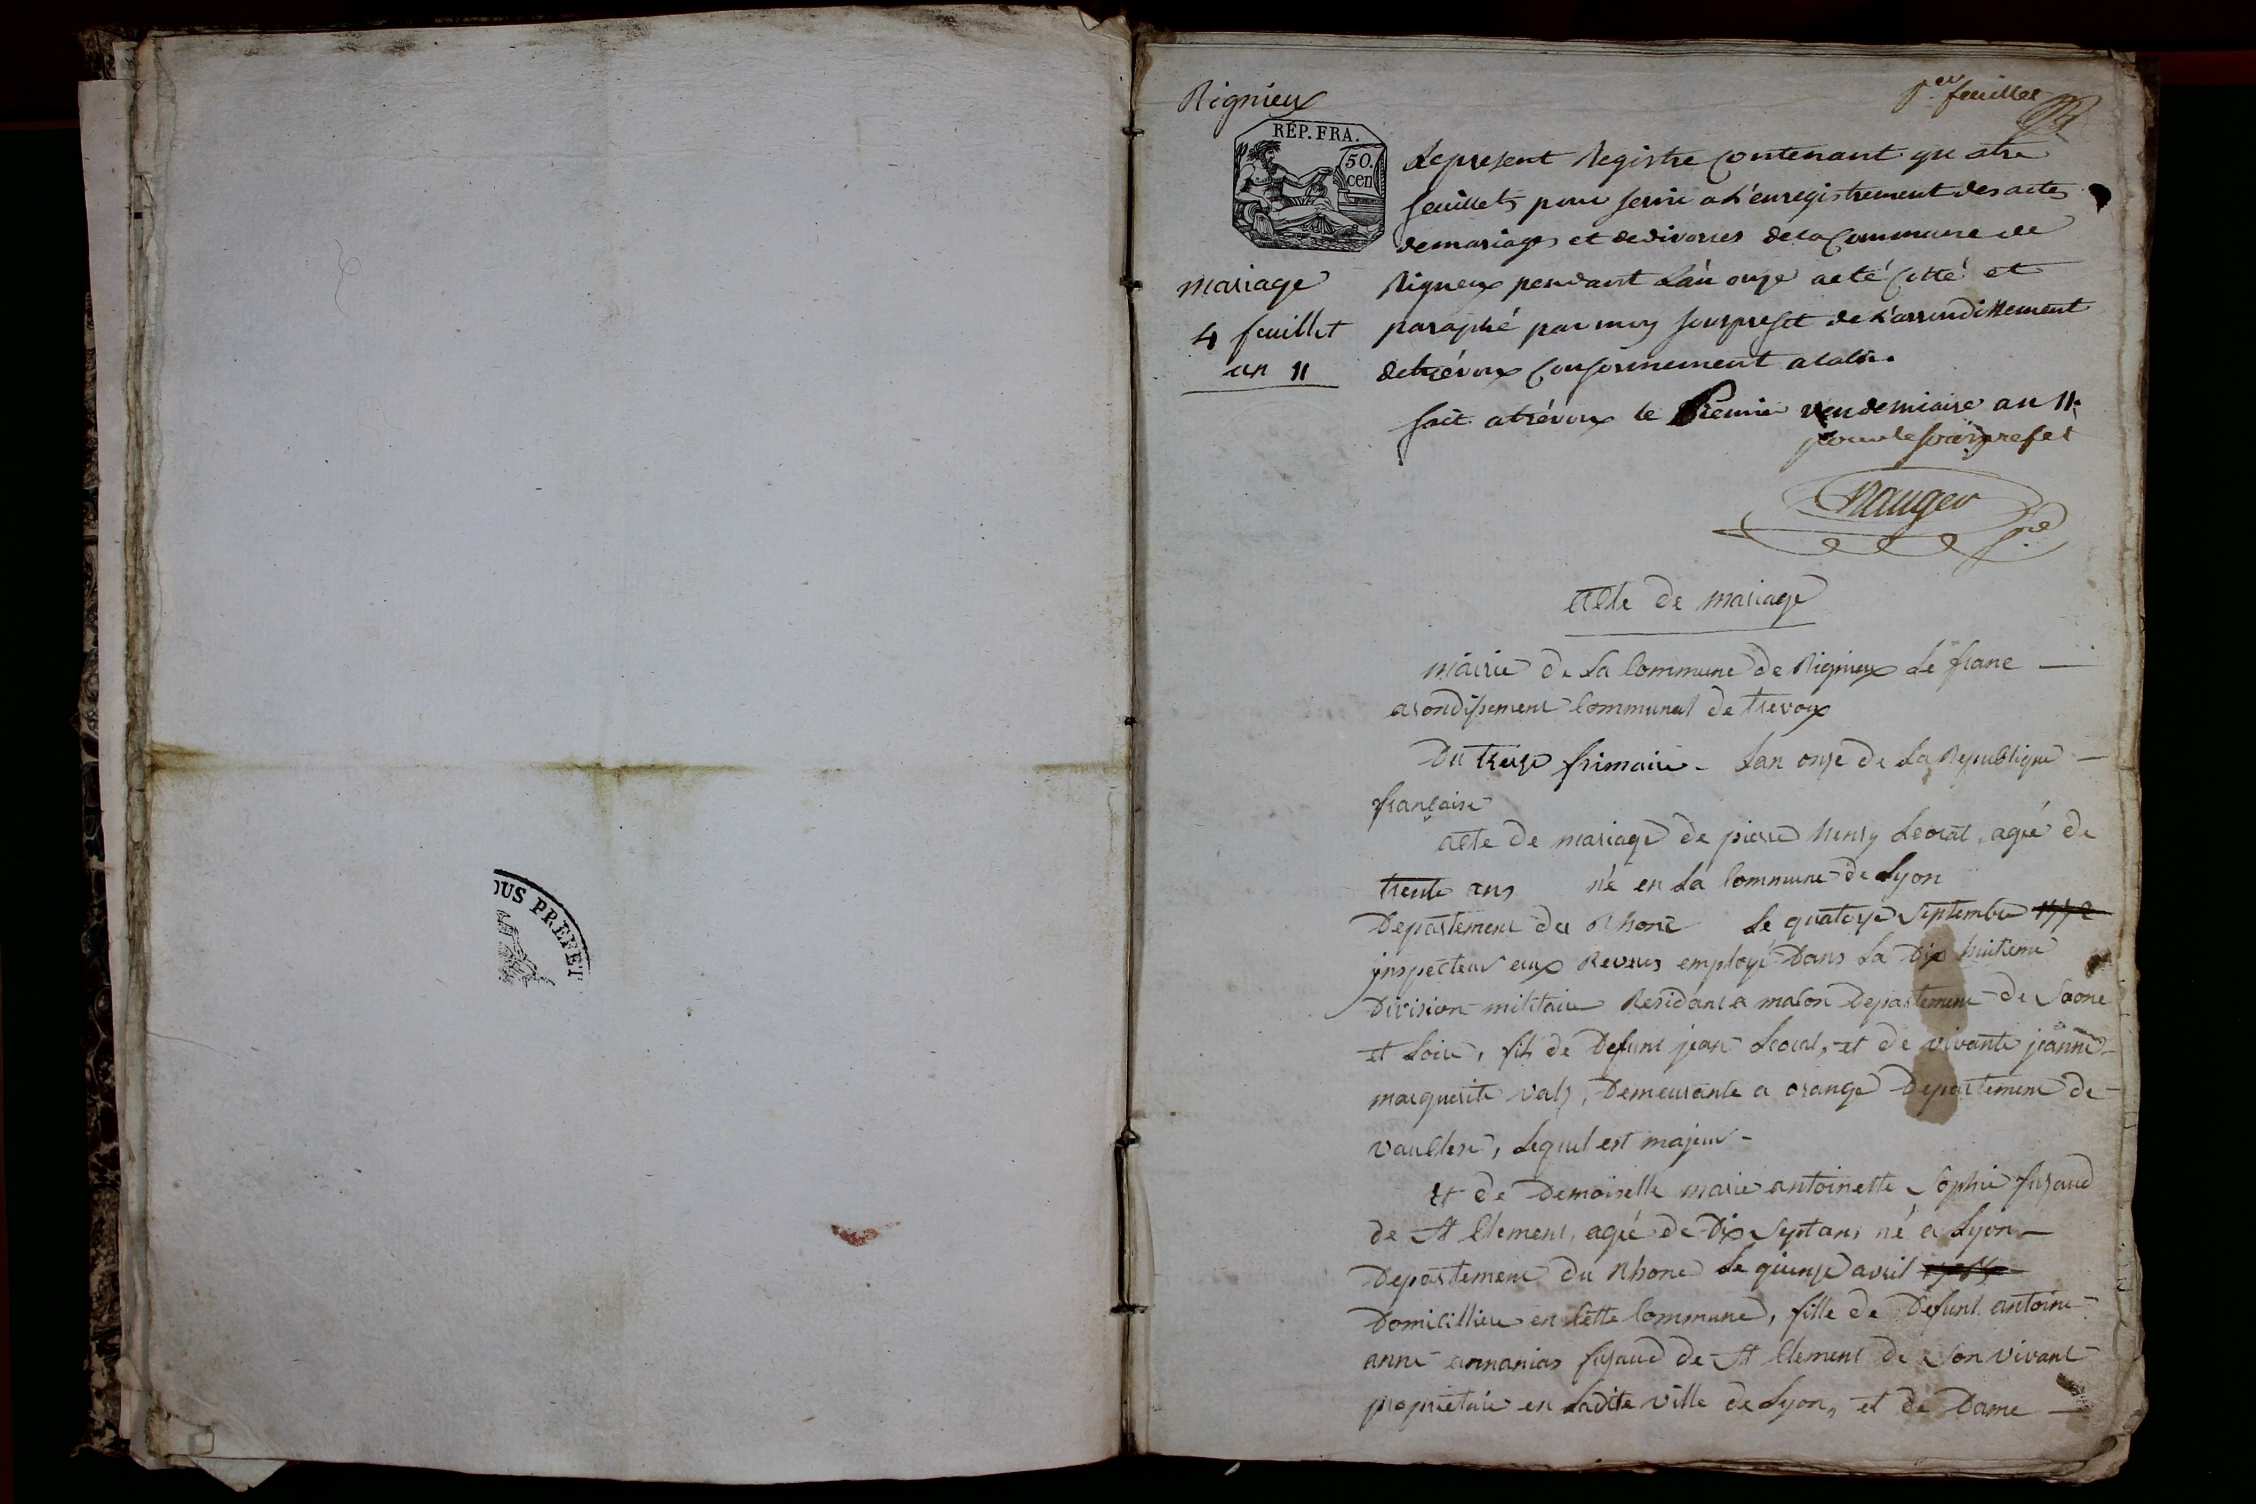 OUS PREFET
Rignieux
1er feuillet
REP. FRA.
50.
cen
Le present Registre Contenant quatre
feuillets pour servir a L'enregistrement des actes
de mariages et de divorces de la Commune de
mariage
Rigneux pendant L'an onze a eté Cotté et
4 feuillet
paraphé par moy souspreset de L'arrondissement
an 11
de trévoux Conformement a la loi.
fait a trévoux le Premier Vendemiaire an 11.
pour le sousprefet
acte de mariage
Mairie de La Commune de Rignieux Le franc
arondissement Communal de trevoux
Du treize frimaire - Lan onze de La Republique
française
acte de mariage de pierre henry Leorat, ageé de
trente ans né en La Commune de Lyon
Departement du Rhone Le quatorze Septembre 1772
jnspecteur aux Revues employé Dans La Dix huitieme
Division militaire Residant a macon Departement de Saone
et Loire, fils de Defunt jean Leorat, et de vivante jeanne
marguerite Valz, Demeurante a orange Departement de
Vauclese, Lequel est majeur -
Et de Demoiselle marie antoinette Sophie
de St Clement, ageé de Dix Sept ans né a Lyon
Departement du Rhone Le quinze avril
Domicilliee en Cette Commune, fille de Defunt antoine
anne annanias de St Clement de Son vivant
proprietaire en Ladite ville de Lyon, et de Dame